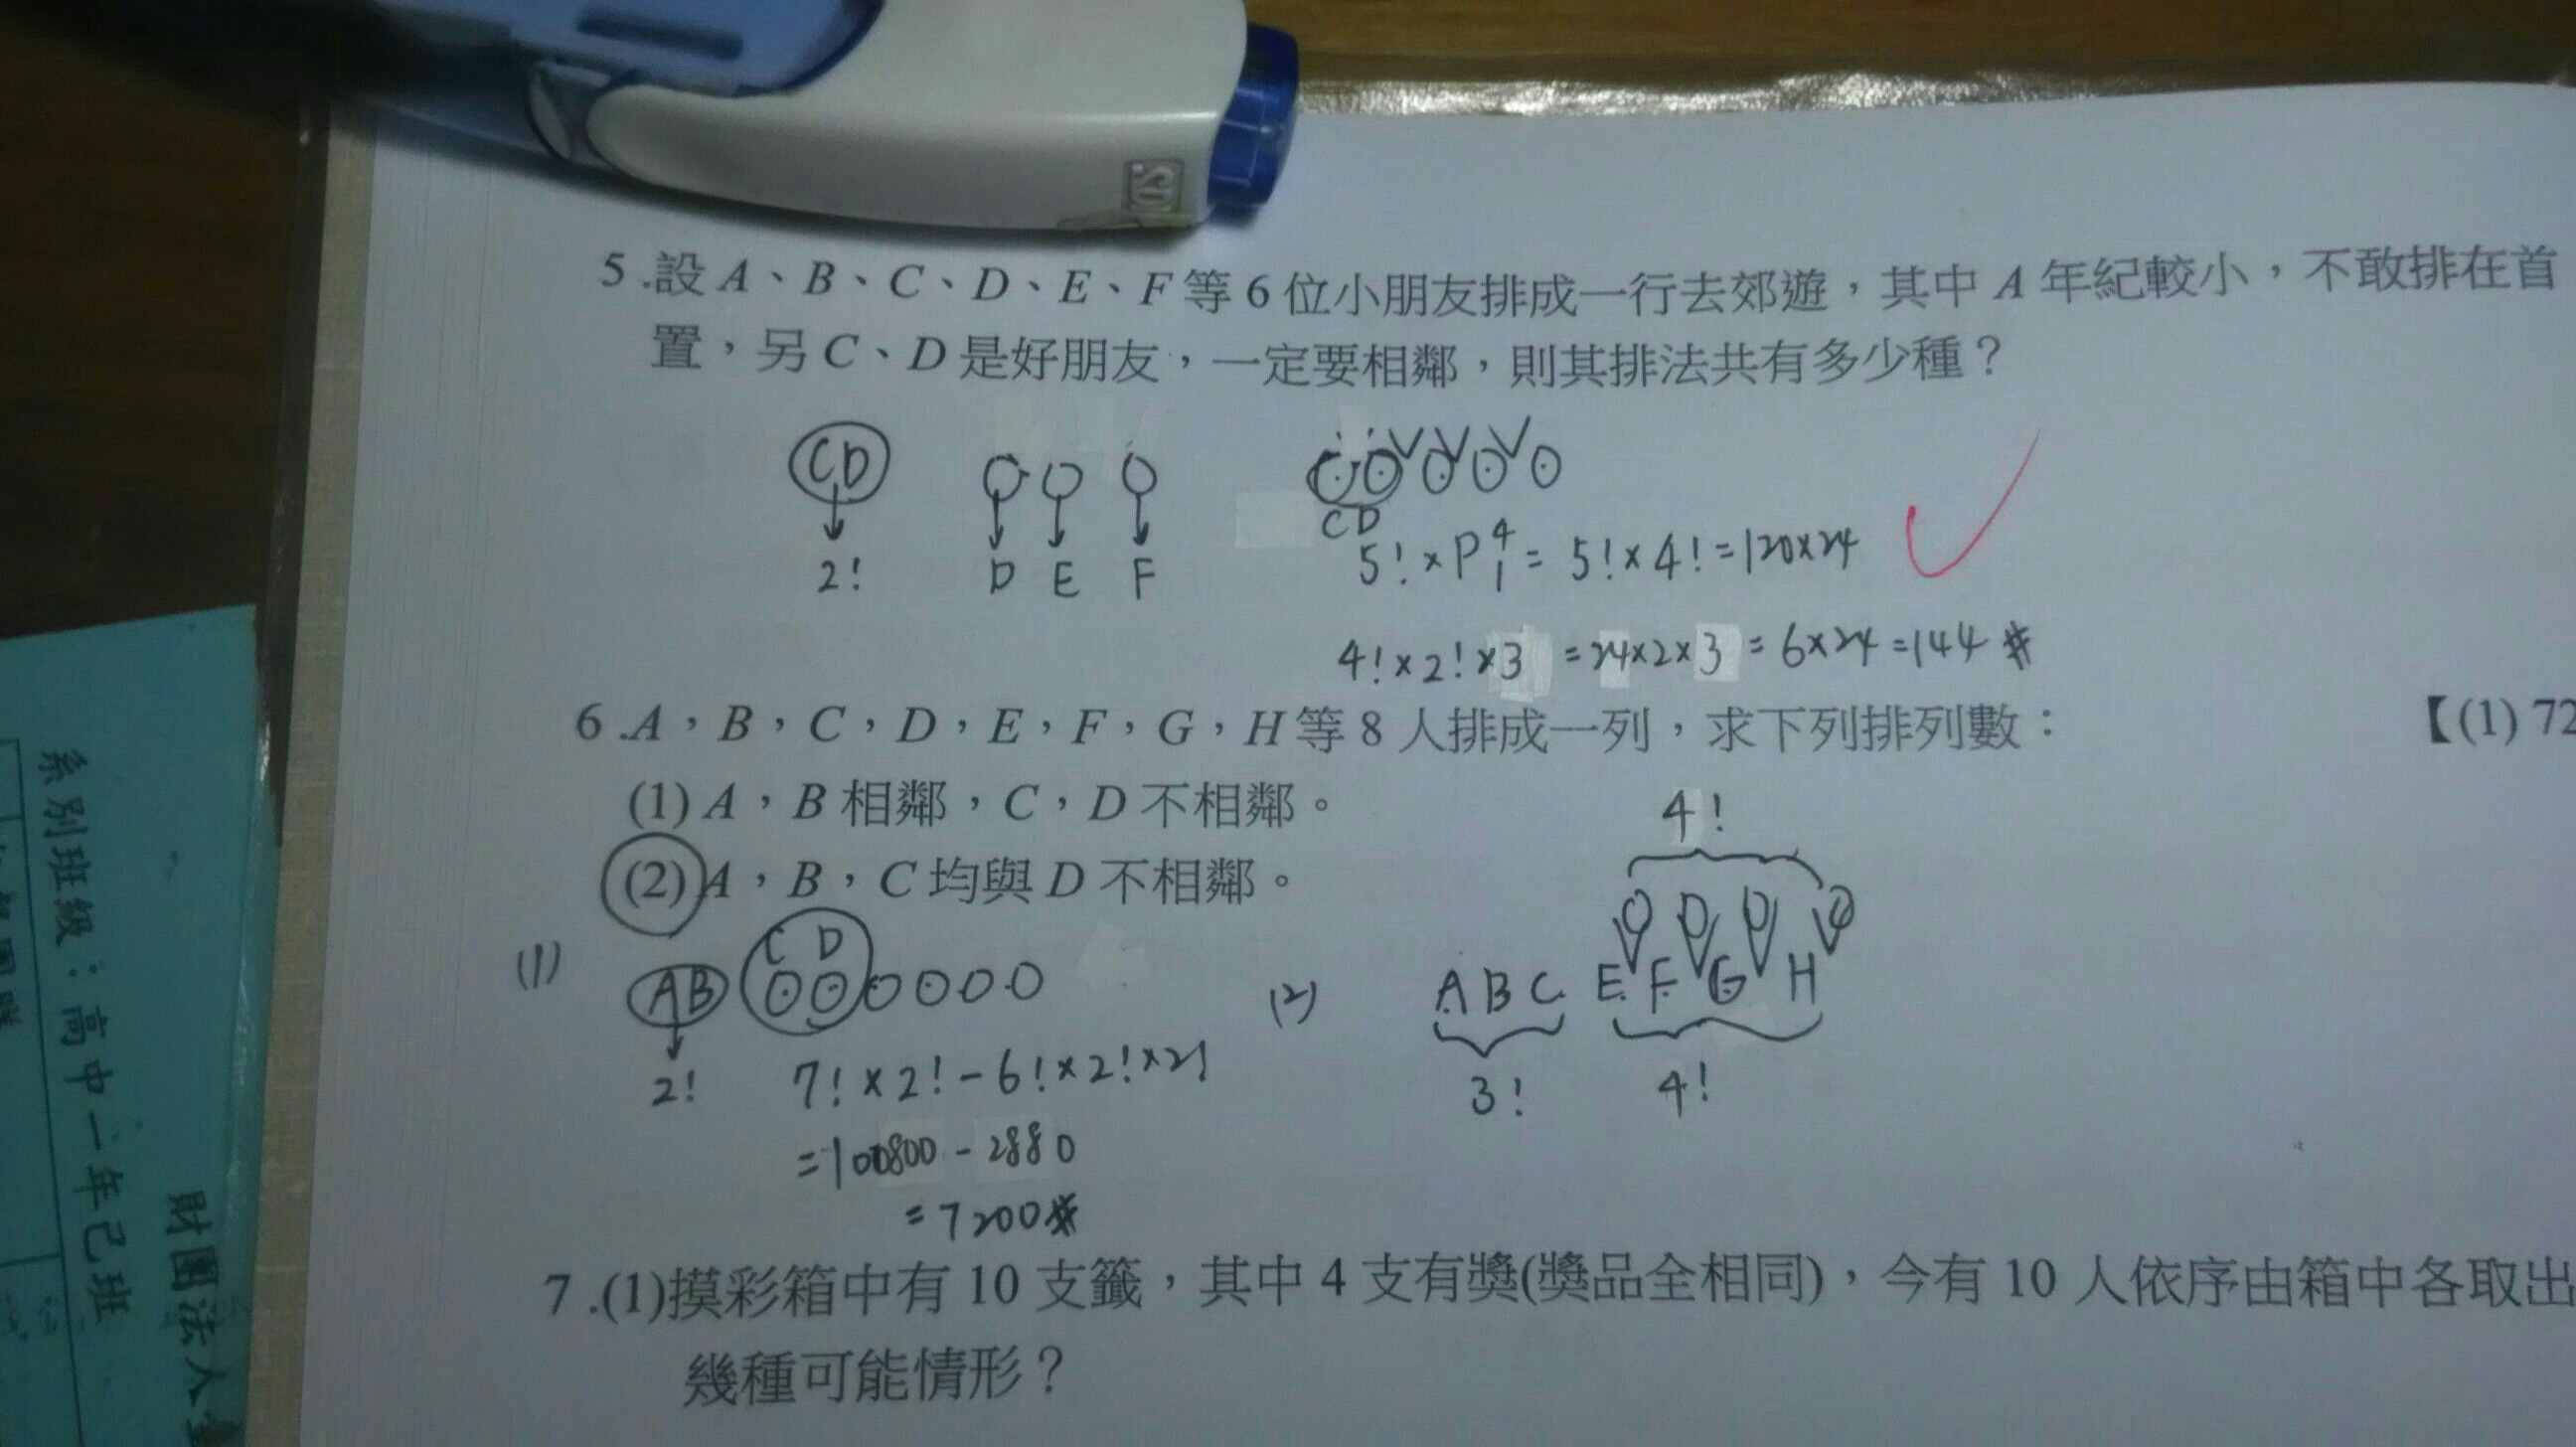 5.設A、B、C、D、E、F等6位小朋友排成一行去郊遊，其中A年紀較小，不敢排在首
置，另C、D是好朋友，一定要相鄰，則其排法共有多少種？
CD
2! D E F
CD
5!×P⁴₁=5!×4!=120×24
4!×2!×3=24×2×3=6×24=144#
6.A，B，C，D，E，F，G，H等8人排成一列，求下列排列數：
【(1) 72
(1)A，B相鄰，C，D不相鄰。
(2)A，B，C均與D不相鄰。
(1)
C D
AB
2!
7!×2!-6!×2!×2!
=100800-2880
=7200#
(2)
4!
A B C E F G H
3! 4!
7.(1)摸彩箱中有10支籤，其中4支有獎(獎品全相同)，今有10人依序由箱中各取出
幾種可能情形？
系別班級：高中一年己班
財團法人